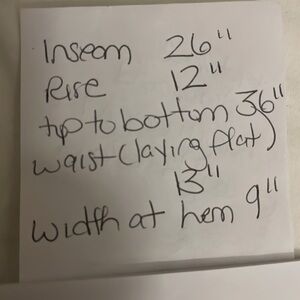 Inseam 26"
Rise 12"
tip to bottom 36"
waist (laying flat)
13"
width at hem 9"